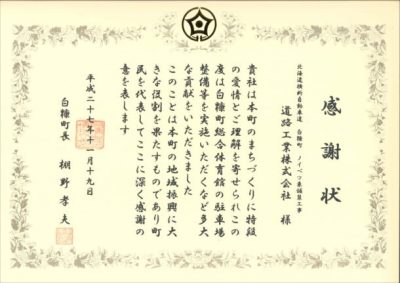 感謝状
北海道横断自動車道 白糠町 ノイベツ東舗装工事
道路工業株式会社 様
貴社は本町のまちづくりに特段
の愛情とご理解を寄せられこの
度は白糠町総合体育館の駐車場
整備等を実施いただくなど多大
な貢献をいただきました
このことは本町の地域振興に大
きな役割を果たすものであり町
民を代表してここに深く感謝の
意を表します
平成二十七年十一月十九日
白糠町長 棚野孝夫